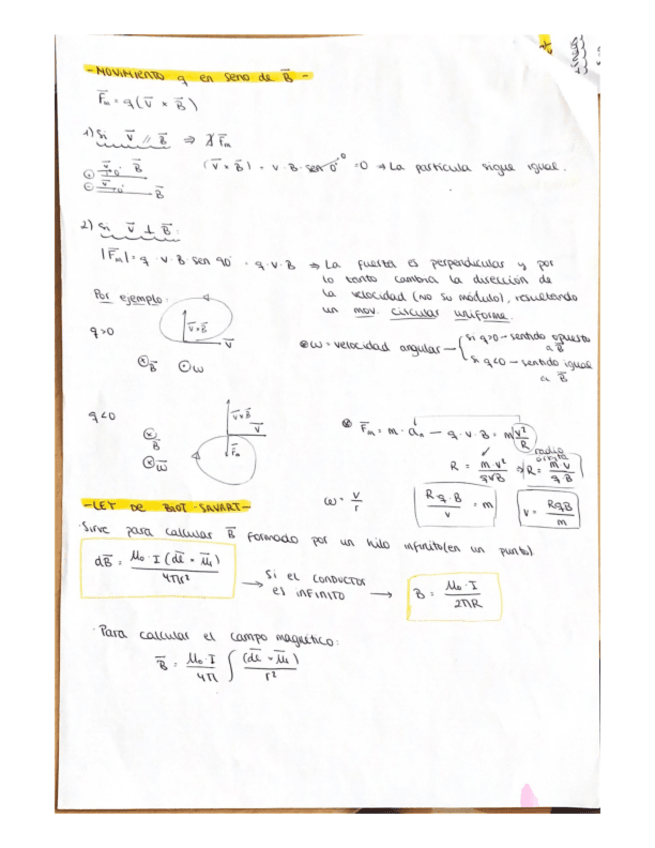 - MOVIMIENTO q en seno de B⃗ -
F⃗m = q(V⃗ × B⃗)
1) Si V⃗ // B⃗ ⇒ ∄ F⃗m
(V⃗ × B⃗) = v · B · sen 0° = 0 ⇒ La partícula sigue igual.
V⃗ B⃗
V⃗ B⃗
2) Si V⃗ ⊥ B⃗:
|F⃗m| = q · v · B · sen 90° = q · v · B ⇒ La fuerza es perpendicular y por
lo tanto cambia la dirección de
la velocidad (no su módulo), resultando
un mov. circular uniforme.
Por ejemplo:
q>0
V⃗×B⃗
V⃗
⊗B⃗ ⊙ω
⊛ω = velocidad angular
si q>0 - sentido opuesto
a B⃗
si q<0 - sentido igual
a B⃗
q<0
V⃗×B⃗
V⃗
F⃗m
⊗B⃗
⊗ω⃗
⊛ F⃗m = m · an - q · v · B = m v²/R
radio
órbita
R = m v²/qvB ⇒ R = m v/q B
ω = v/r
R q · B/v = m
v = RqB/m
- LEY DE BIOT-SAVART -
· Sirve para calcular B⃗ formado por un hilo infinito (en un punto)
dB⃗ = μ₀ · I (dl⃗ × u⃗r)/4πr² → Si el CONDUCTOR
es INFINITO → B = μ₀ · I/2πR
· Para calcular el campo magnético:
B⃗ = μ₀ · I/4π ∫ (dl⃗ × u⃗r)/r²